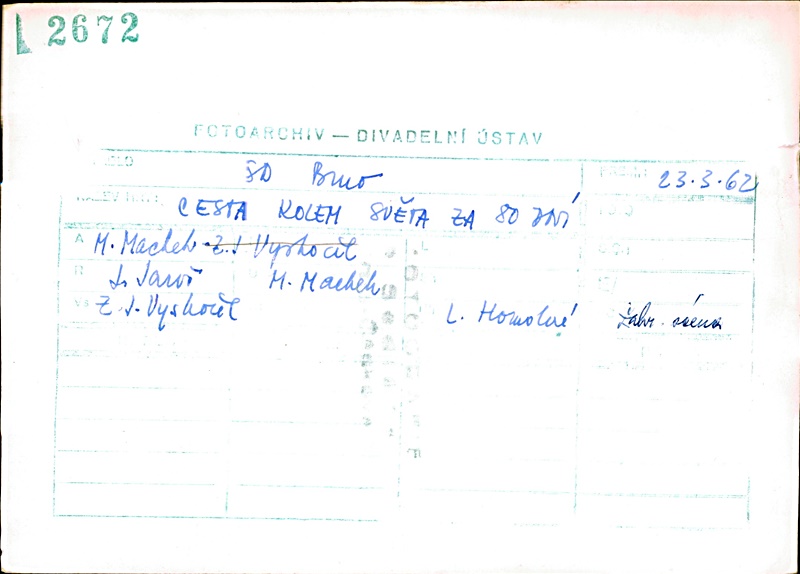 2672
FOTOARCHIV — DIVADELNÍ ÚSTAV
SD Brno 23.3.62
CESTA KOLEM SVĚTA ZA 80 DNÍ
A M. Machek Z. J. Vyskočil
R J. Jaroš M. Machek
Z. J. Vyskočil L. Homolné